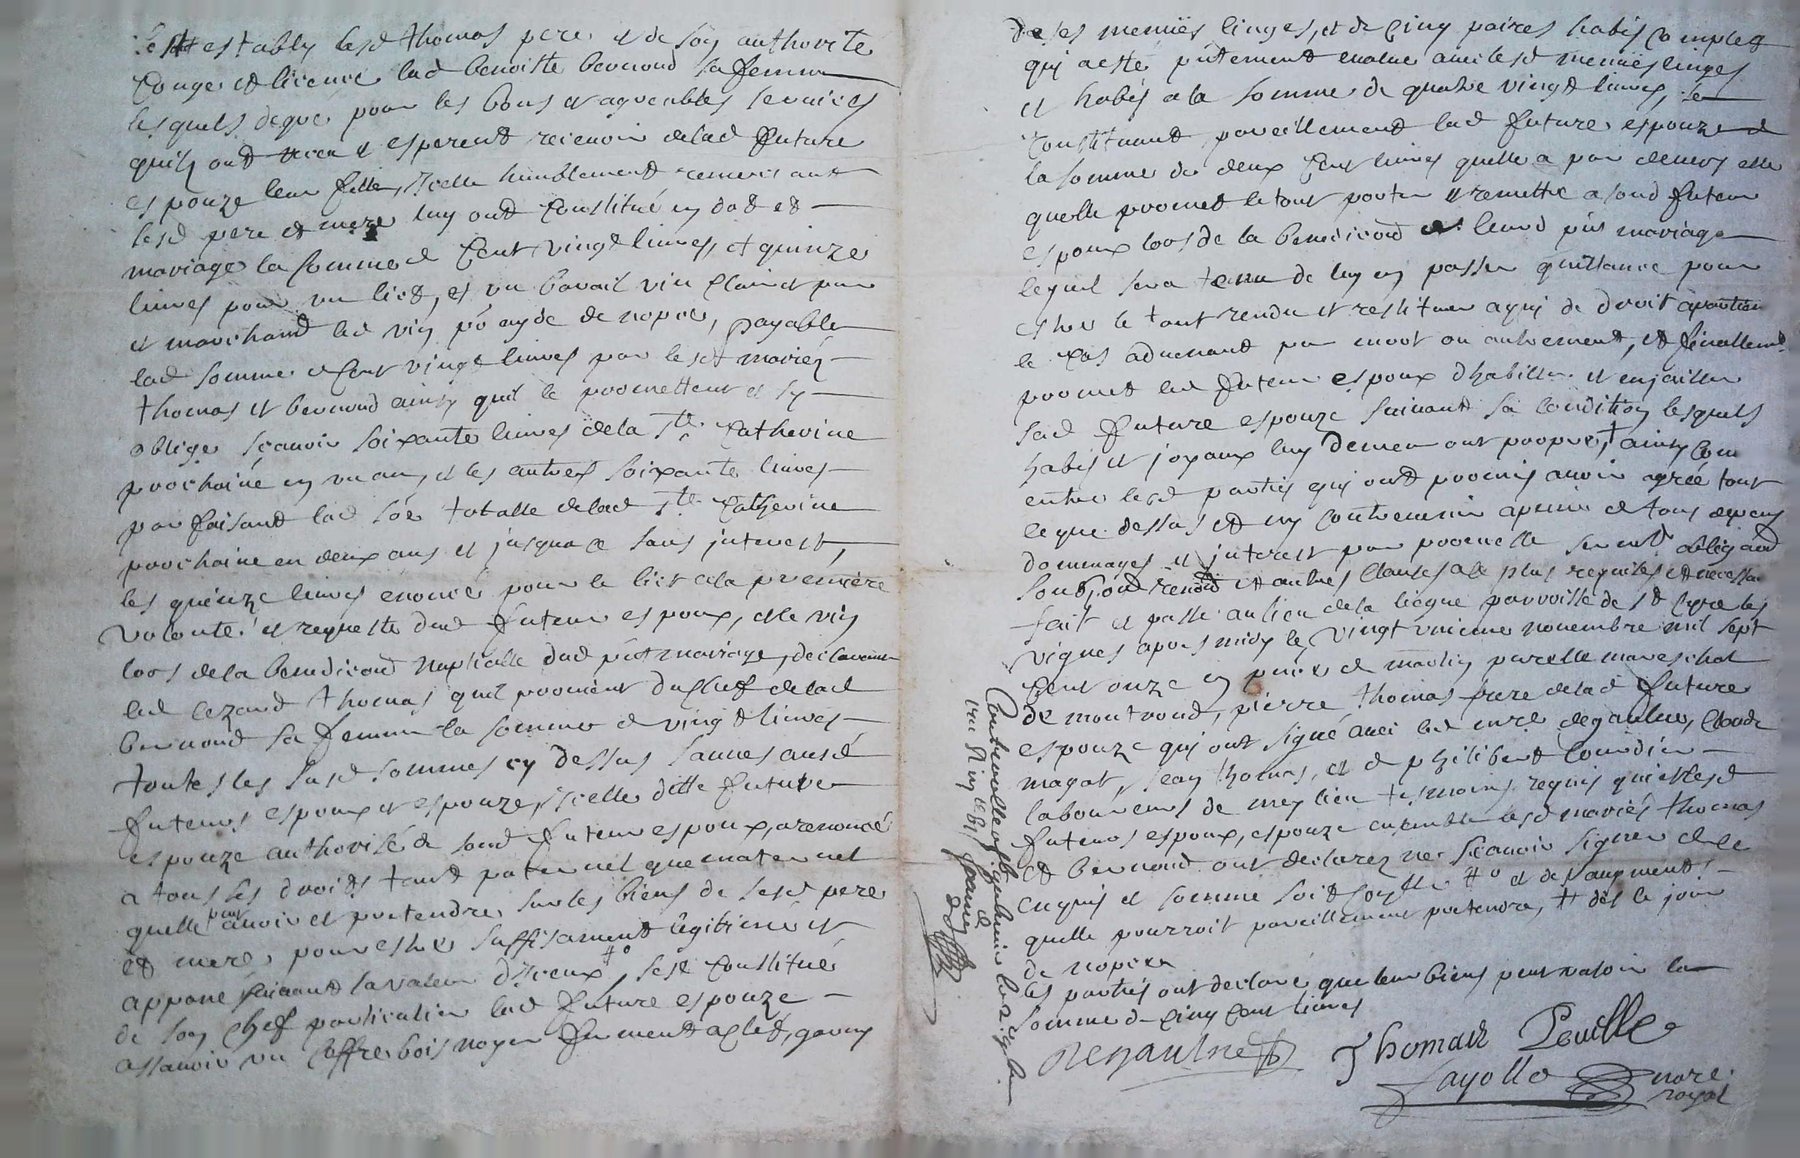 estably led Thomas pere et de soy authorité
conge et licence lad benoiste bernond sa femme
lesquels de gré pour les bons et agreables services
quilz ont receu et esperent recevoir de lad future
espouze leur fille, icelle humblement remerciant
lesd pere et mere luy ont constitué en dot et
mariage la somme de cent vingt livres, et quinze
livres pour un lict, et un baral vin clairet pur
et marchand led vin
lad somme de cent vingt livres par lesd mariéz
thomas et bernond ainsy quil le promettent et sy
oblige scavoir soixante livres de la Ste Catherine
prochaine en un an, et les autres soixante livres
parfaisant lad soe totalle de lad Ste Catherine
prochaine en deux ans et jusqua ce sans interest,
les quinze livres enoncé pour le lict a la premiere
volonté et requeste dud futeur espoux, et le vin
lors de la benediction nuptialle dud pnt mariage, declarant
led thomas quil du chef de lad
bernond sa femme la somme de vingt livres
toutes les susd sommes cy dessus
futeurs espoux et espouze, icelle ditte future
espouze authorisé de sond futeur espoux, a renoncé
a tous ses droits tant paternel que maternel
quelle peut avoir et pretendre sur les biens de sesd pere
et mere, pour estre suffisament legitimé et
appané suivant la valeur diceux #°, se constitué
de son chef particulier lad future espouze
assavoir un coffre bois noyer fermant a clef, garny
de ses menües linges, et de cinq paires habis complet
qui a esté pntement evalué avec lesd menües linges
et habis a la somme de quatre vingt livres, se
constituant pareillement lad future espouze
la somme de deux cent livres quelle a par devers elle
quelle promet le tout porter et remettre a sond futeur
espoux lors de la benediction de leurd pnt mariage
lequel sera tenu de luy en passer quittance pour
estre le tout rendu et restituer a qui de droit apartien
le cas advenant par mort ou autrement, et finallement
promet led futeur espoux dhabiller et enjailler
sad future espouze suivant sa condition lesquels
habis et joyaux luy demeuront propre, † ainsy conv
entre lesd parties qui ont promis avoir agréé tout
le que dessus et ny contrevenir a peine de tous depens
dommages et interest par promesse serment obligaon
soubz on renon et autres clauses a le plus requises et necessa
fait et passé au lieu de la begue parroisse de St Cyre les
vignes apres midy le vingt unieme novembre mil sept
cent onze en pnce de mareschal
de montrond, pierre thomas frere de lad future
espouze qui ont signé avec led mre degaulne, Claude
magat, Jean thomas, et de philibert
laboureurs de mesme lieu tesmoins requis qui et lesd
futeurs espoux, espouze ensemble lesd mariés thomas
et bernond ont declarez ne scavoir signer de ce
enquis et sommé soit #° et de l'augment
quelle pourroit pareillement pretendre, # dès le jour
de nopces
les partiés ont declaré que leur biens peut valoir la
somme de cinq cent livres
Degaulne
Thomas
Fayolle nore
royal